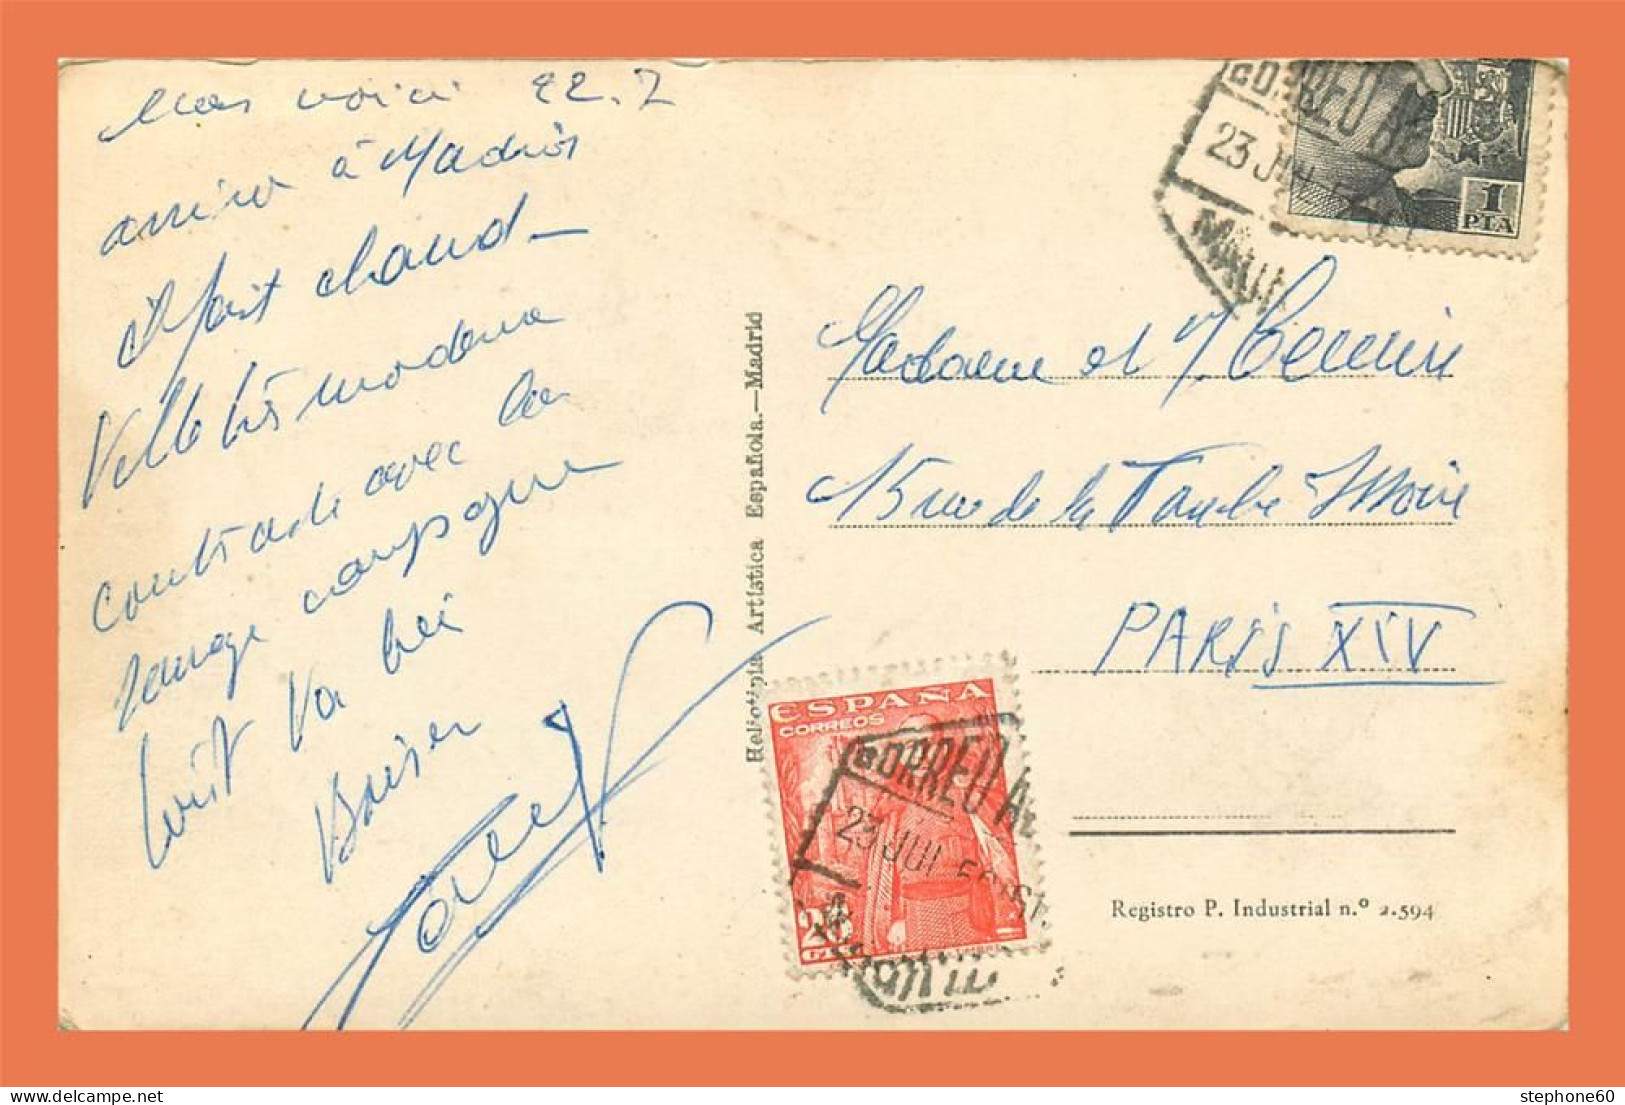 nous voici 22.7
arrivé à Madrid
il fait chaud -
Ville très moderne
contraste avec la
campagne
tout va bien
Baiser
Heliotipia Artística Española.—Madrid
CORREO AE
23 JUL 5
MADR
1
PTA
Madame et M.
15 rue de la Tombe Issoire
PARIS XIV
ESPAÑA
CORREOS
CORREO AE
23 JUL 5
25
Registro P. Industrial n.º 2.594
stephone60